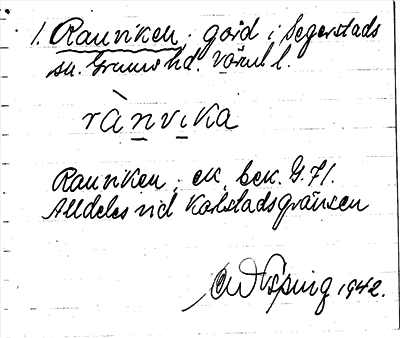 1. Ranviken. gård i Segerstads
sn. Grums hd. Värml l.
rànvika
Ranviken, ek. bek. G. 71.
Alldeles vid Karlstadsgränsen
1942.